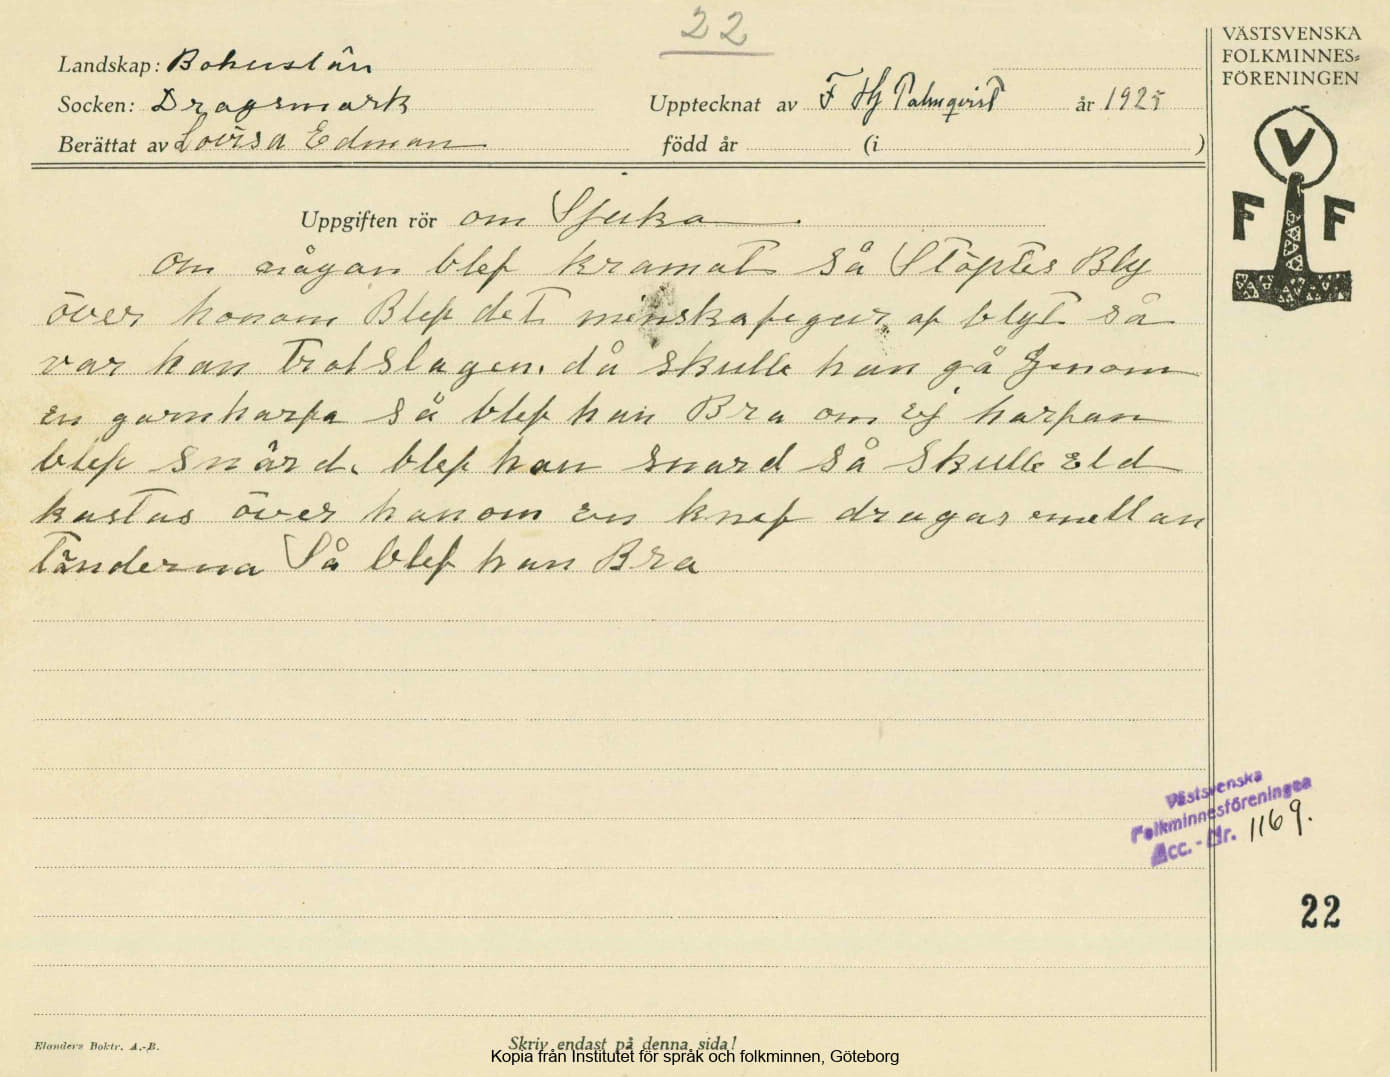 22
VÄSTSVENSKA
FOLKMINNES=
FÖRENINGEN
Landskap: Bohuslän
Socken: Dragsmark
Upptecknat av F Hj Palmqvist år 1925
Berättat av Lovisa Edman
född år (i )
V
F F
Uppgiften rör om Sjuka
om någon blef kramat så Stöptes Bly
över honom Blef det mënskafigur af blyt så
var han TrolSlagen. då skulle han gå Jenom
en garnharfa så blef han Bra om ej harfan
blef snärd. blef han snard så skulle Eld
kastas över honom en knif dragas emellan
Tänderna Så blef han Bra
Västsvenska
Folkminnesföreningen
Acc.-Nr. 1169.
22
Elanders Boktr. A.-B.
Skriv endast på denna sida!
Kopia från Institutet för språk och folkminnen, Göteborg